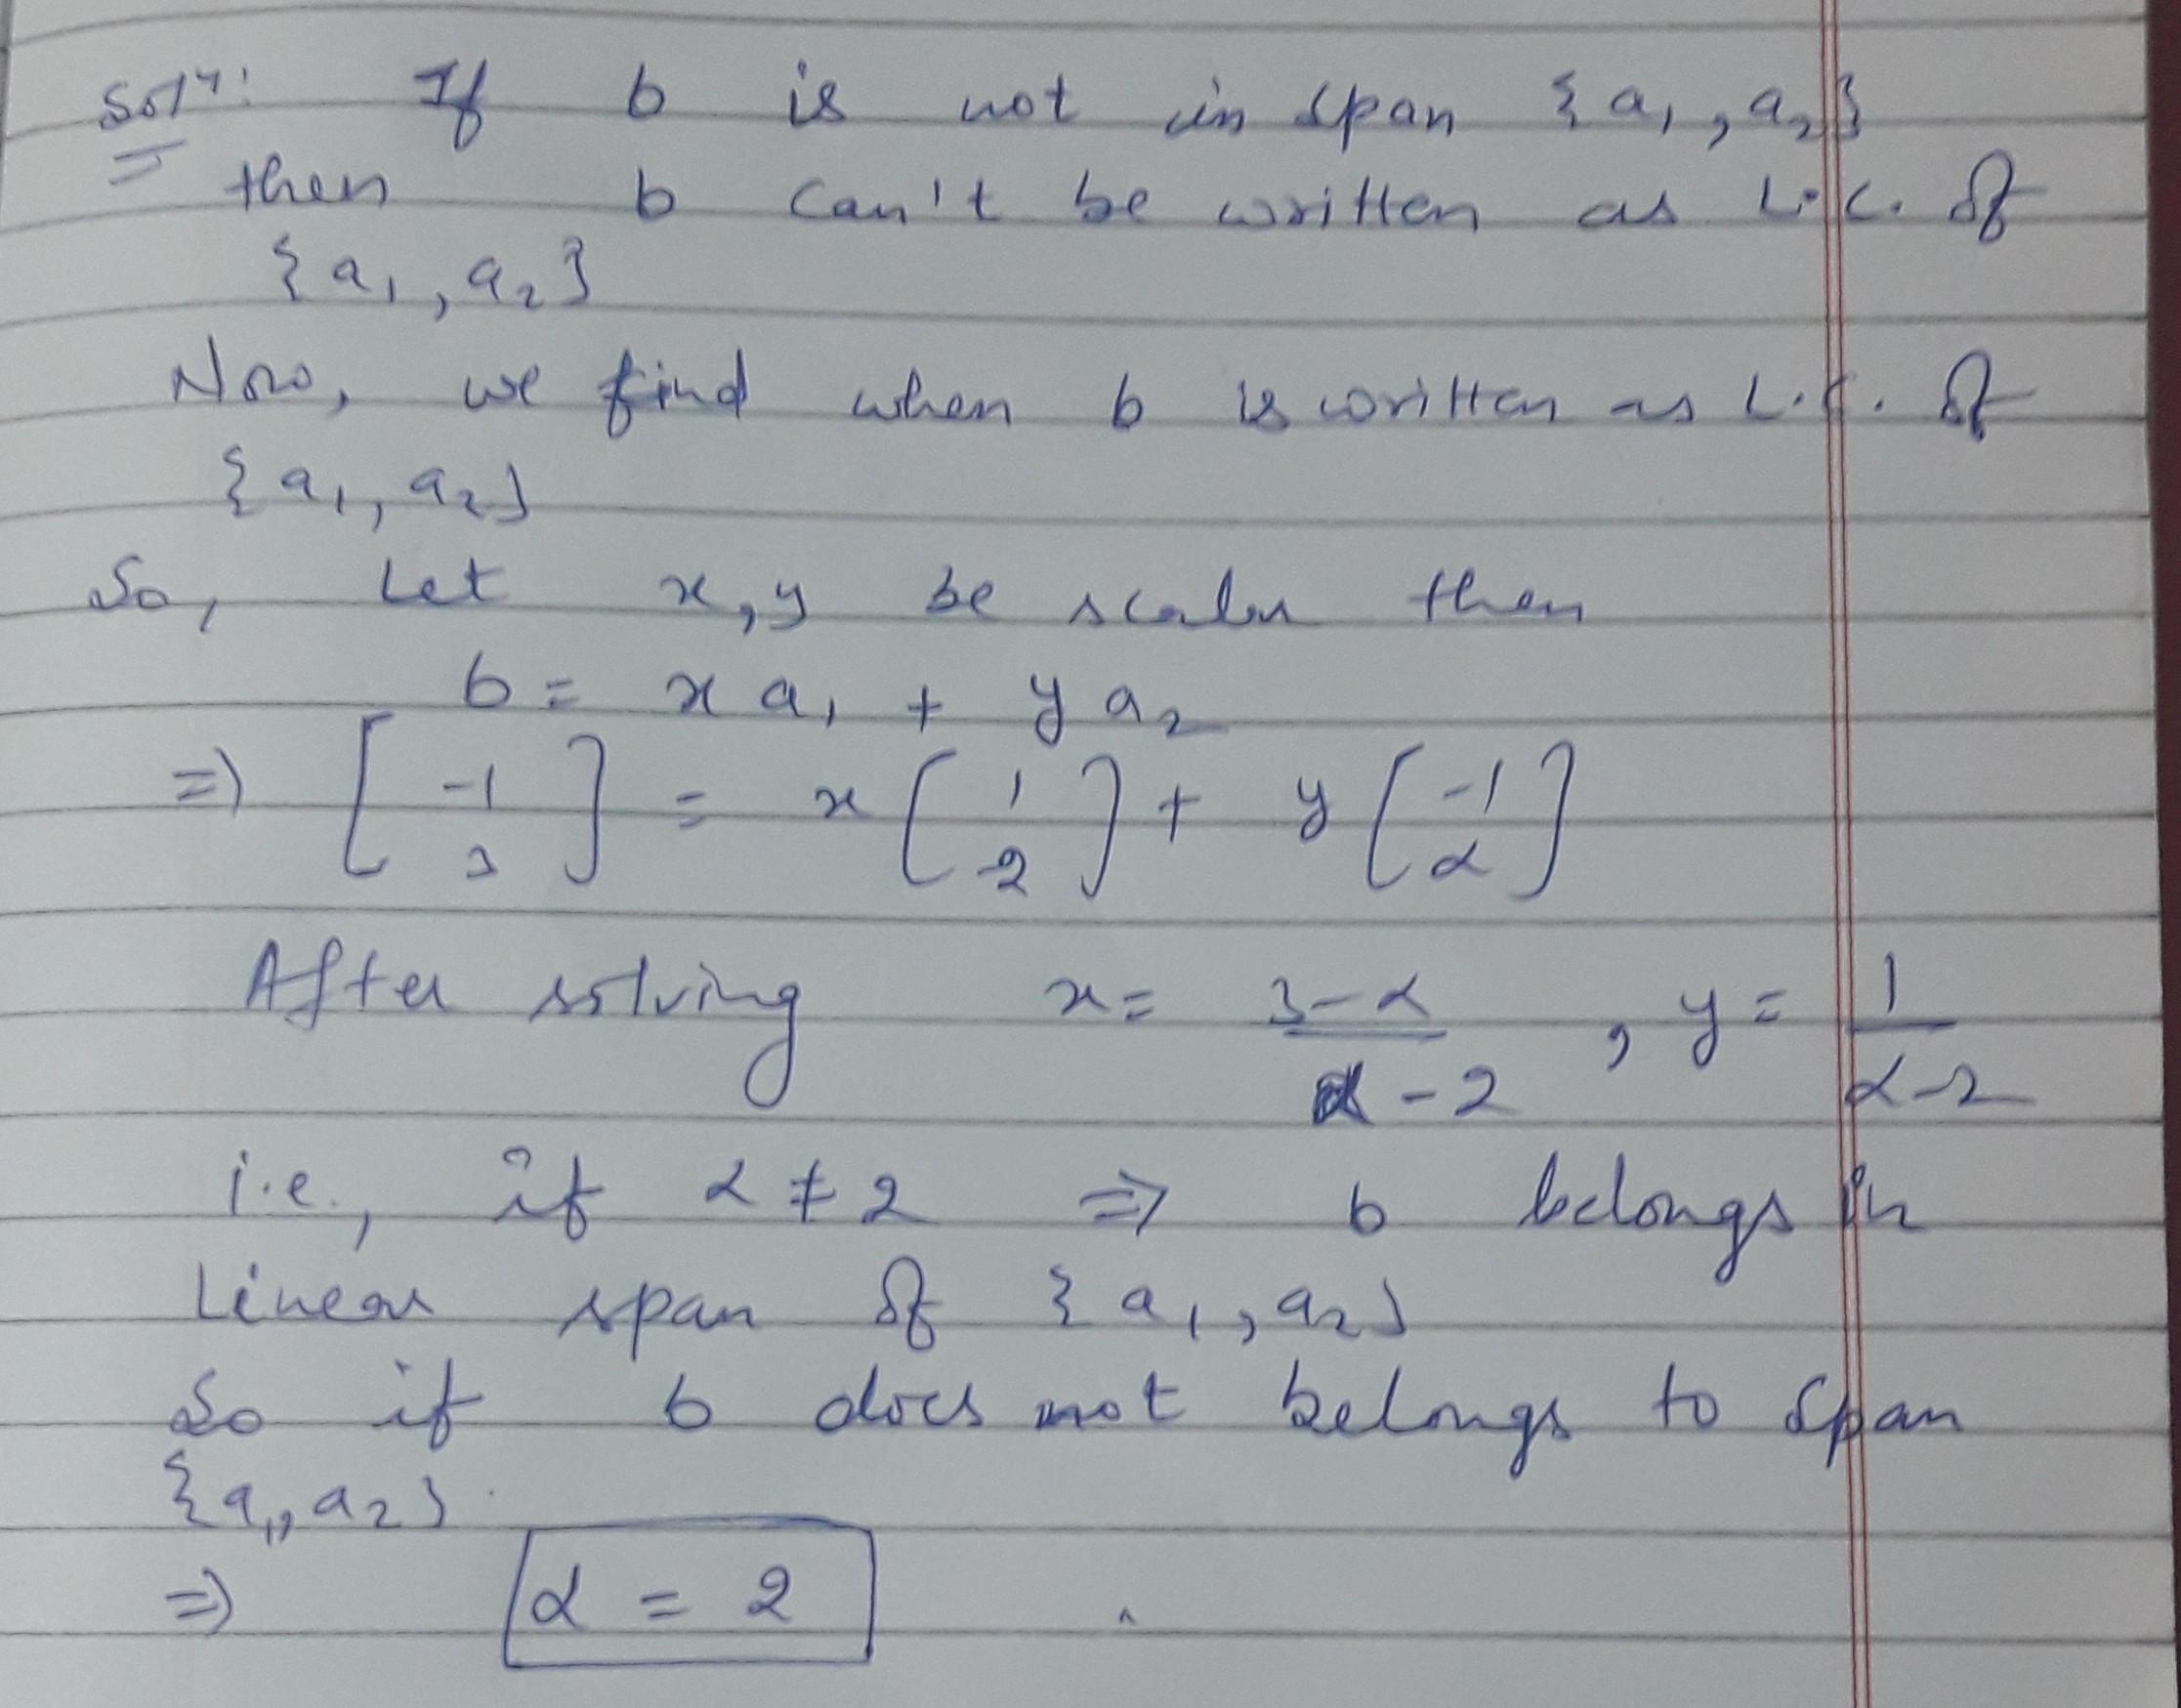 Soln:  If b is not in span {a₁, a₂}
then b can't be written as L.C. of
{a₁, a₂}
Now, we find when b is written as L.C. of
{a₁, a₂}
So, Let x, y be scalar then
b = x a₁ + y a₂
=> [-1 3] = x [1 -2] + y [-1 α]
After solving x = (3-α)/(α-2), y = 1/(α-2)
i.e., if α ≠ 2 => b belongs in
Linear span of {a₁, a₂}
So if b does not belongs to span
{a₁, a₂}
=> α = 2